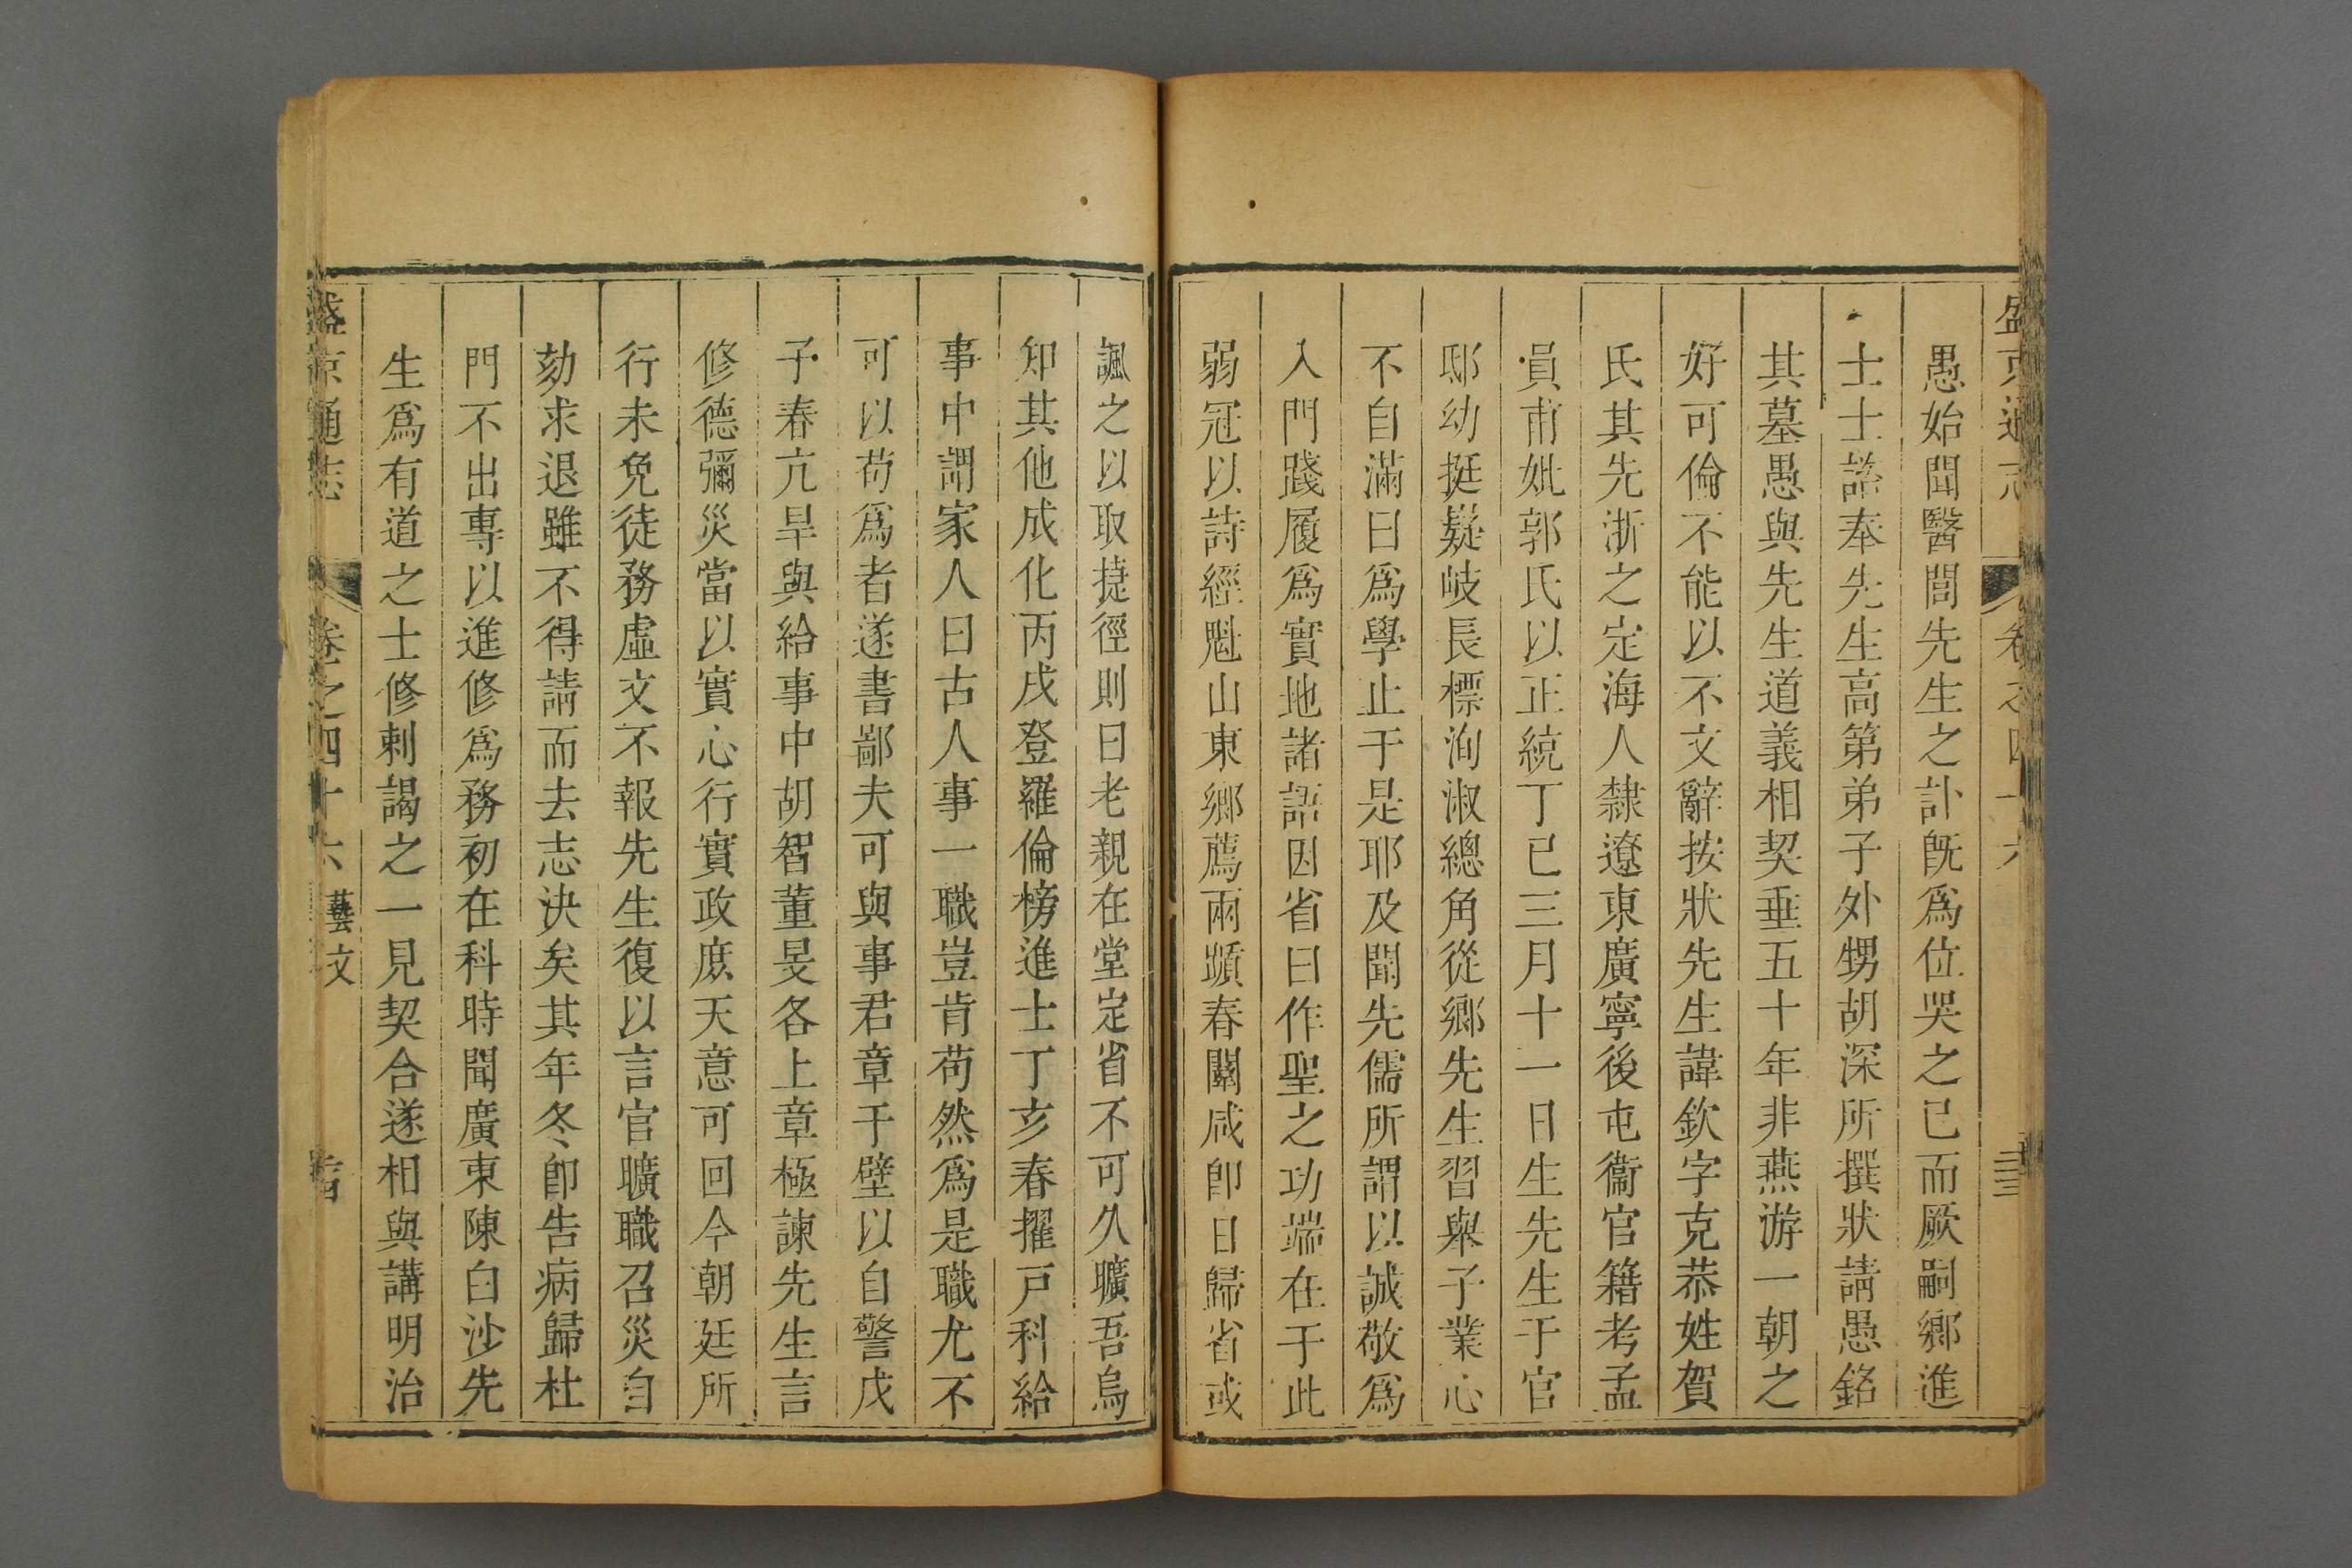 盛京通志 卷之四十六
愚始聞醫閭先生之訃旣爲位哭之已而厥嗣鄉進
士士諮奉先生高第弟子外甥胡深所撰狀請愚銘
其墓愚與先生道義相契垂五十年非燕游一朝之
好可倫不能以不文辭按狀先生諱欽字克恭姓賀
氏其先浙之定海人隸遼東廣寧後屯衞官籍考孟
員甫妣郭氏以正統丁巳三月十一日生先生于官
邸幼挺嶷岐長標洵淑總角從鄉先生習舉子業心
不自滿曰爲學止于是耶及聞先儒所謂以誠敬爲
入門踐履爲實地諸語因省曰作聖之功端在于此
弱冠以詩經魁山東鄉薦兩蹟春闈咸卽日歸省或
諷之以取捷徑則曰老親在堂定省不可久曠吾烏
知其他成化丙戌登羅倫榜進士丁亥春擢戸科給
事中謂家人曰古人事一職豈肯苟然爲是職尤不
可以苟爲者遂書鄙夫可與事君章于壁以自警戊
子春亢旱與給事中胡智董旻各上章極諫先生言
修德彌災當以實心行實政庶天意可回今朝廷所
行未免徒務虛文不報先生復以言官曠職召災自
劾求退雖不得請而去志決矣其年冬卽告病歸杜
門不出專以進修爲務初在科時聞廣東陳白沙先
生爲有道之士修刺謁之一見契合遂相與講明治
盛京通志 卷之四十六 藝文